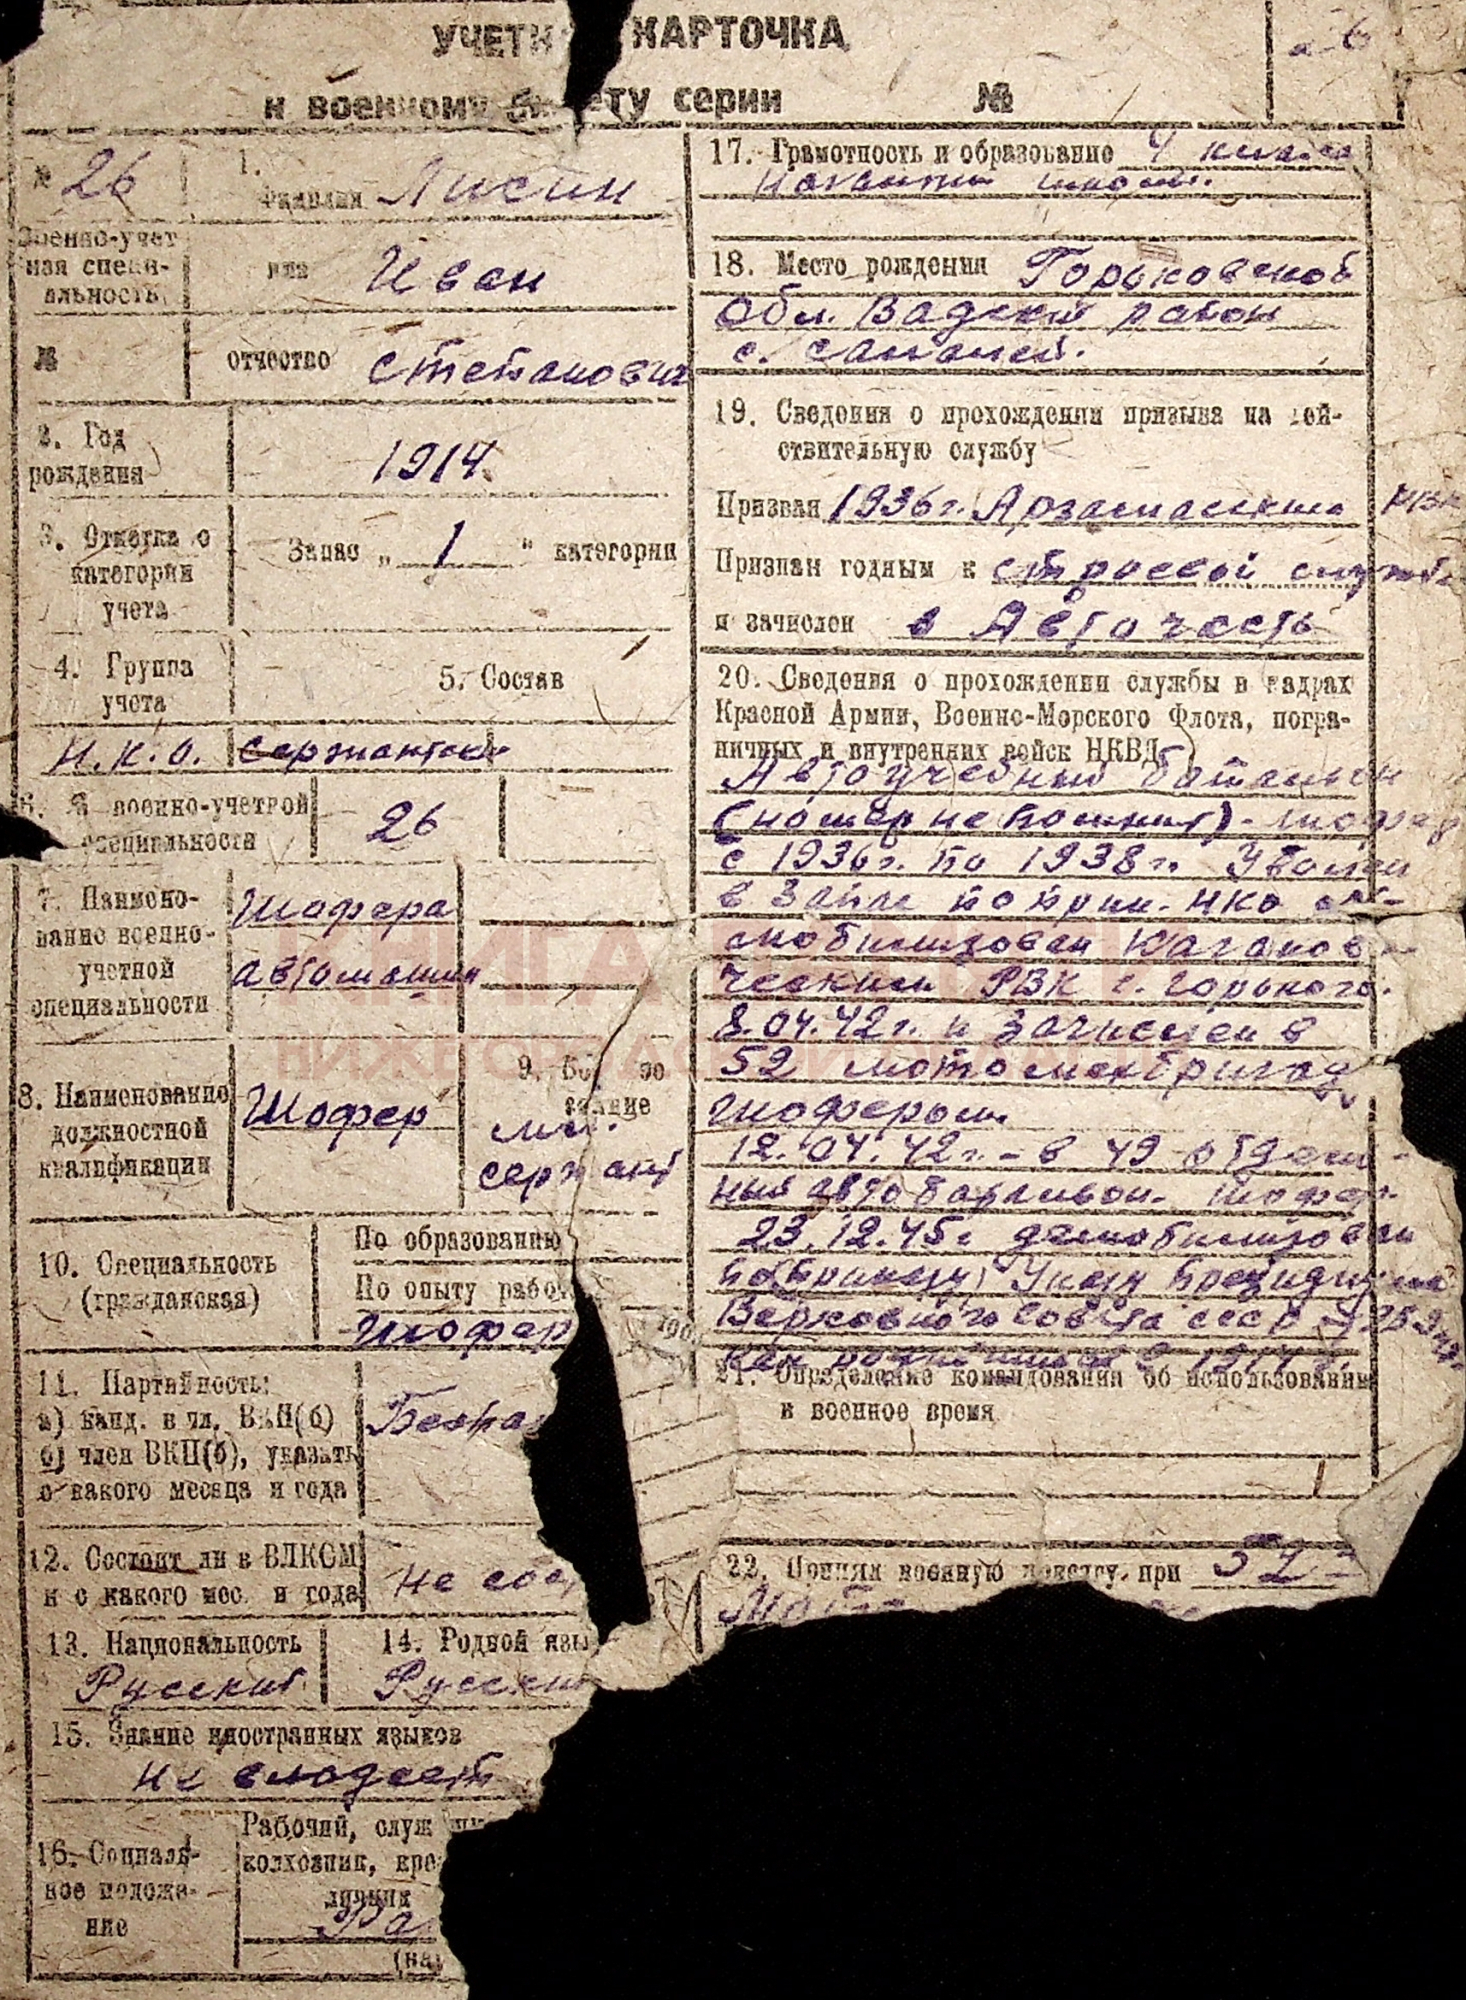 УЧЕТН КАРТОЧКА
к военному би ету серии №
26
№ 26
1. Фамилия Лисин
Военно-учет
ная специ-
альность
имя Иван
№
отчество Степанович
2. Год
рождения
1914
3. Отметка о
категории
учета
Запас „ 1 " категории
4. Группа
учета
5. Состав
Н.К.О. Сержантск
6. № военно-учетной
специальности
26
7. Наимено-
вание военно-
учетной
специальности
Шофера
автомашин
8. Наименование
должностной
квалификации
Шофер
9. Во ое
звание
мл.
сержант
10. Специальность
(гражданская)
По образованию
По опыту рабо
Шофер
11. Партийность:
а) канд. в чл. ВКП(б)
б) член ВКП(б), указать
с какого месяца и года
Беспа
12. Состоит ли в ВЛКСМ
и с какого мес. и года
не сос
13. Национальность
Русский
14. Родной язы
Русский
15. Знание иностранных языков
не владеет
16. Социаль-
ное положе-
ние
Рабочий, служ
колхозник, кре
Ра
17. Грамотность и образование 4 класса
школы.
18. Место рождения Горьковской
Обл. Вадский район
с.
19. Сведения о прохождении призыва на дей-
ствительную службу
Призван 1936г. Арзамасским РВК
Признан годным к строевой службе
и зачислен в Авточасть
20. Сведения о прохождении службы в кадрах
Красной Армии, Военно-Морского Флота, погра-
ничных и внутренних войск НКВД
Автоучебный батальон
(номер не помнит) - шофер
с 1936г. по 1938г. Уволен
в запас по прик. НКО
мобилизован Каганови-
ческим РВК г. Горького.
8.04.42г. и зачислен в
52 мотомехбригаду
шофером
12.04.42г. - в 49 отдель-
ный автобатальон. шофер.
23.12.45г. демобилизован
по приказу, Указу Президиума
Верховного Совета СССР 25.9.45
как родившийся в 1914 г.
21. Определение командования об использовании
в военное время
22. Принял военную присягу при 52
Мото
КНИГА ПАМЯТИ
НИЖЕГОРОДСКОЙ ОБЛАСТИ